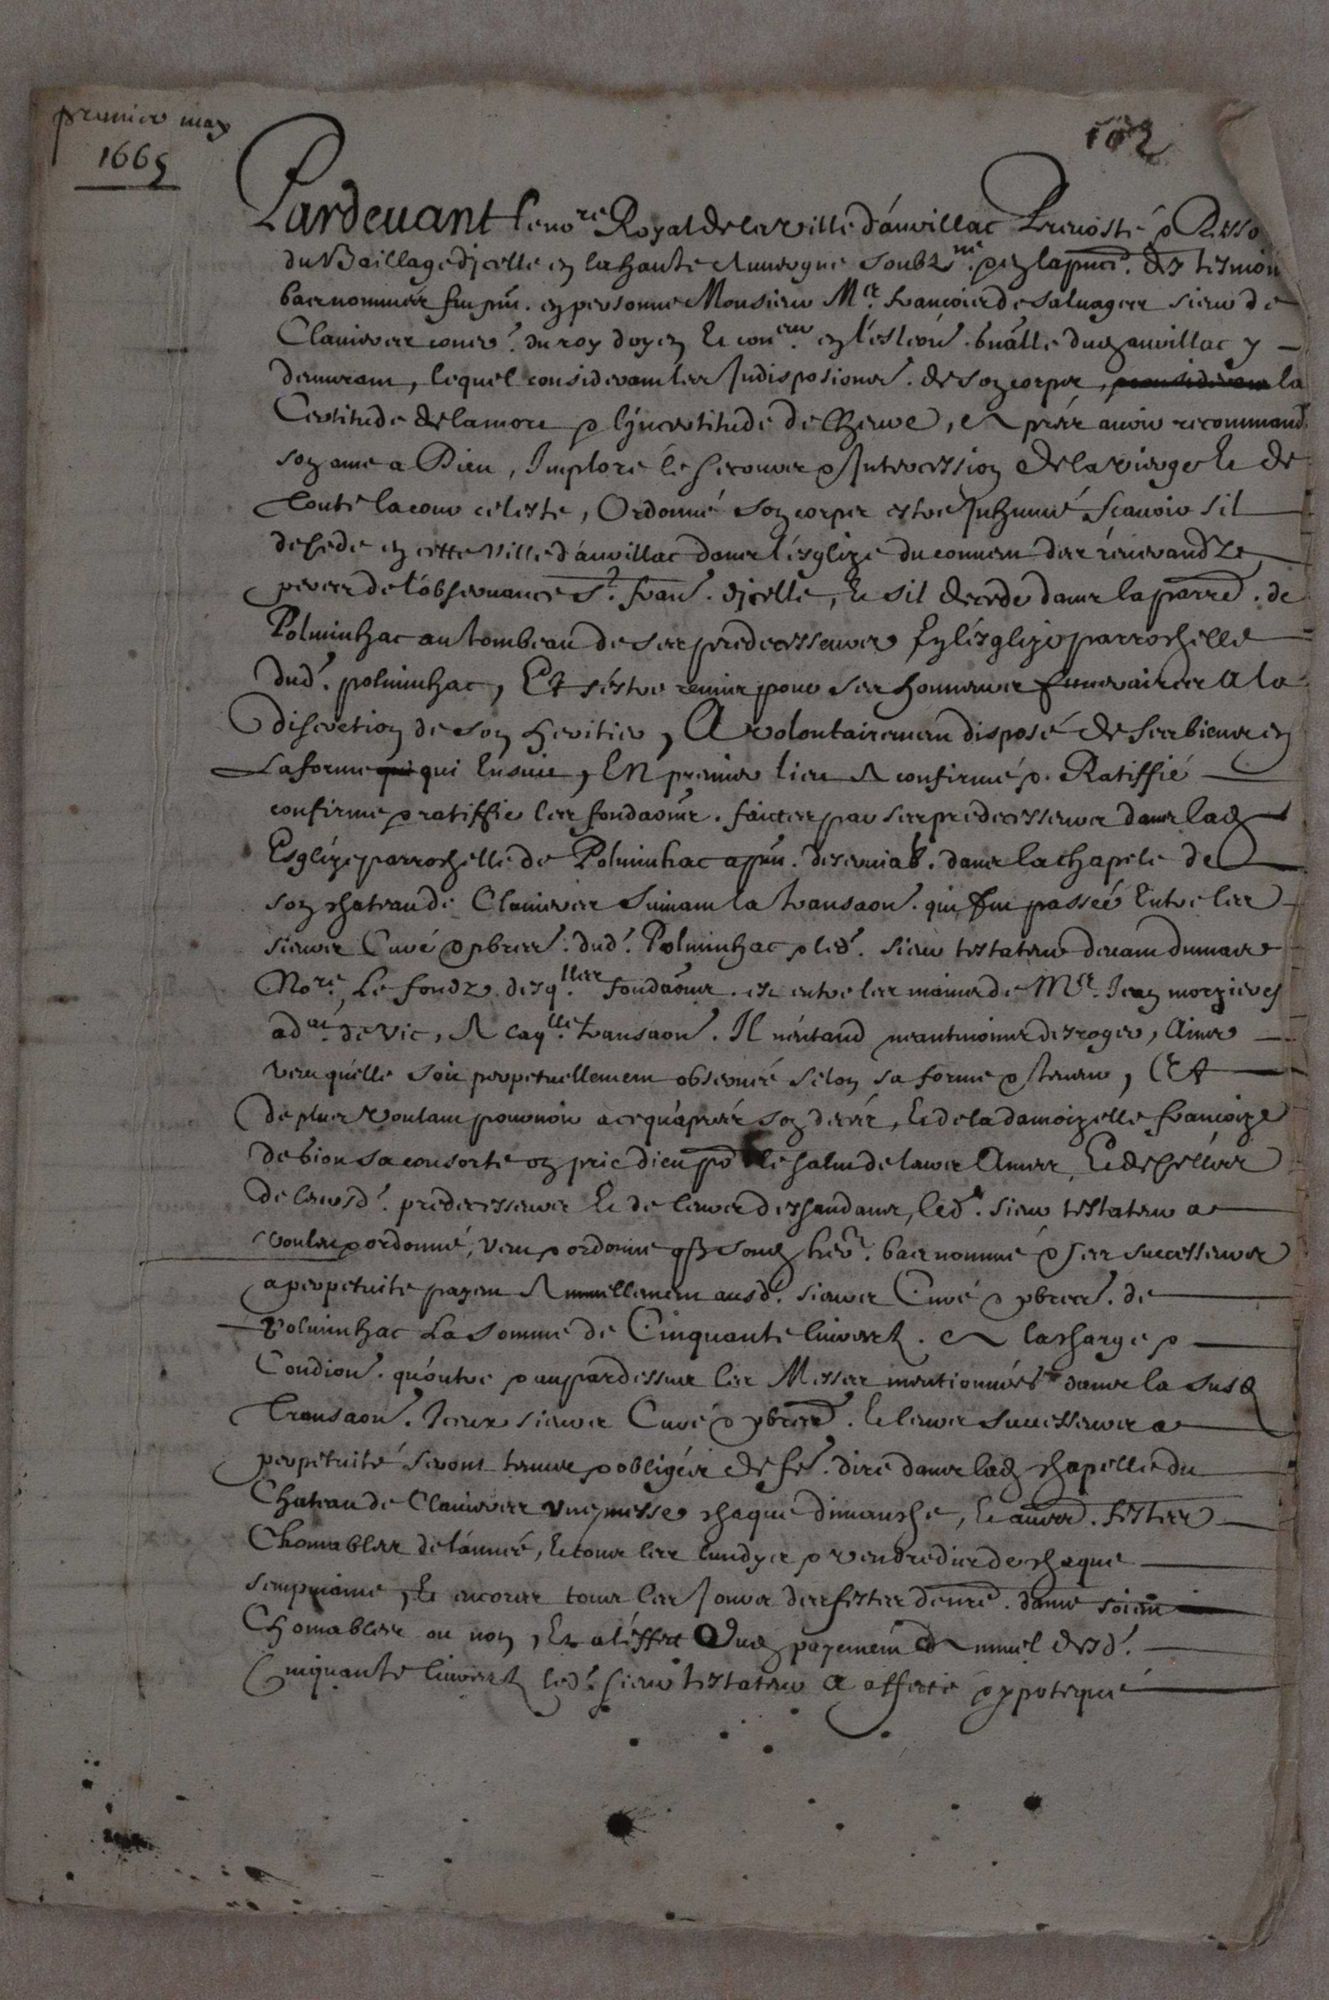 premier may
1665
102
Pardevant le no.re Royal de la ville d'auvillac Prevosté &
du Baillage dicelle en la haute Auvergne soubz.ne & en la pnce. des tesmoin
bas nommés fut pnt. en personne Monsieur M.e françois de Salvages sieur de
Clavieres du roy doyen en l'eslection dud auvillac y
demeurant, lequel considerant les Indisposions. de son corps, la
Certitude de la mort & l'jncertitude de l'heure, apres avoir recommandé
son ame a Dieu, Imploré le secours & Intercession de la vierge et de
toute la cour celeste, Ordonné son corps estre Inhumé Scavoir sil
decede en cette ville d'auvillac dans l'esglize du couvent des reverandz
peres de l'observance S.t fran. dicelle, et sil decede dans la parre. de
Polminhac au tombeau de ses predecesseurs En l'esglize parrochelle
dud. polminhac, Et s'estre remis pour ses honneurs funeraires a la
discretion de son heritier, A volontairement disposé de ses biens en
La forme qui Ensuit, En premier lieu A confirmé & Ratiffié
confirme & ratiffie les fondaons. faictes par ses predecesseurs dans lad
Esglize parrochelle de Polminhac a pnt. dans la chapele de
son chateau de Clavieres Suivant la transaon. qui fut passée Entre les
sieurs Curé & pbres. dud. Polminhac & led. sieur testateur devant
No.re, Le fondz desq.lles fondaons. est entre les mains de M.e Jean
ad.at de Vic, A laq.lle transaon. Il n'entand neantmoins desroger, Ains
veut qu'elle soit perpetuellement observée selon sa forme & teneur, Et
de plus voulant pourvoir a ce qu'apres son decés, Et de la damoizelle françoize
de sa consorte on prie dieu po.r le salut de leurs Ames Et de celles
de leursd. predecesseurs Et de leurs dessandans, led. sieur testateur a
voulu & ordonné, veut & ordonne q sond her. bas nommé & ses successeurs
a perpetuité payent Annuellement ausd. sieurs Curé & pbres. de
Polminhac La Somme de Cinquante livres. A la charge &
Condion. qu'outre & au par dessus les Messes mentionnées dans la susd
Transaon. Iceux sieurs Curé & pbres. Et leurs Successeurs a
perpetuité seront tenus & obligés de fe. dire dans lad chapelle du
Chateau de Clavieres une messe chaque dimanche, et festes
Chomables de l'année, Et tous les lundys & vendredis de chaque
sempmaine, Et encores tous les Jours des festes de nre. dame soient
Chomables ou non, Et a l'effect Dud payement Annuel desd.
Cinquante livres led. sieur testateur A affecté & ypotequé